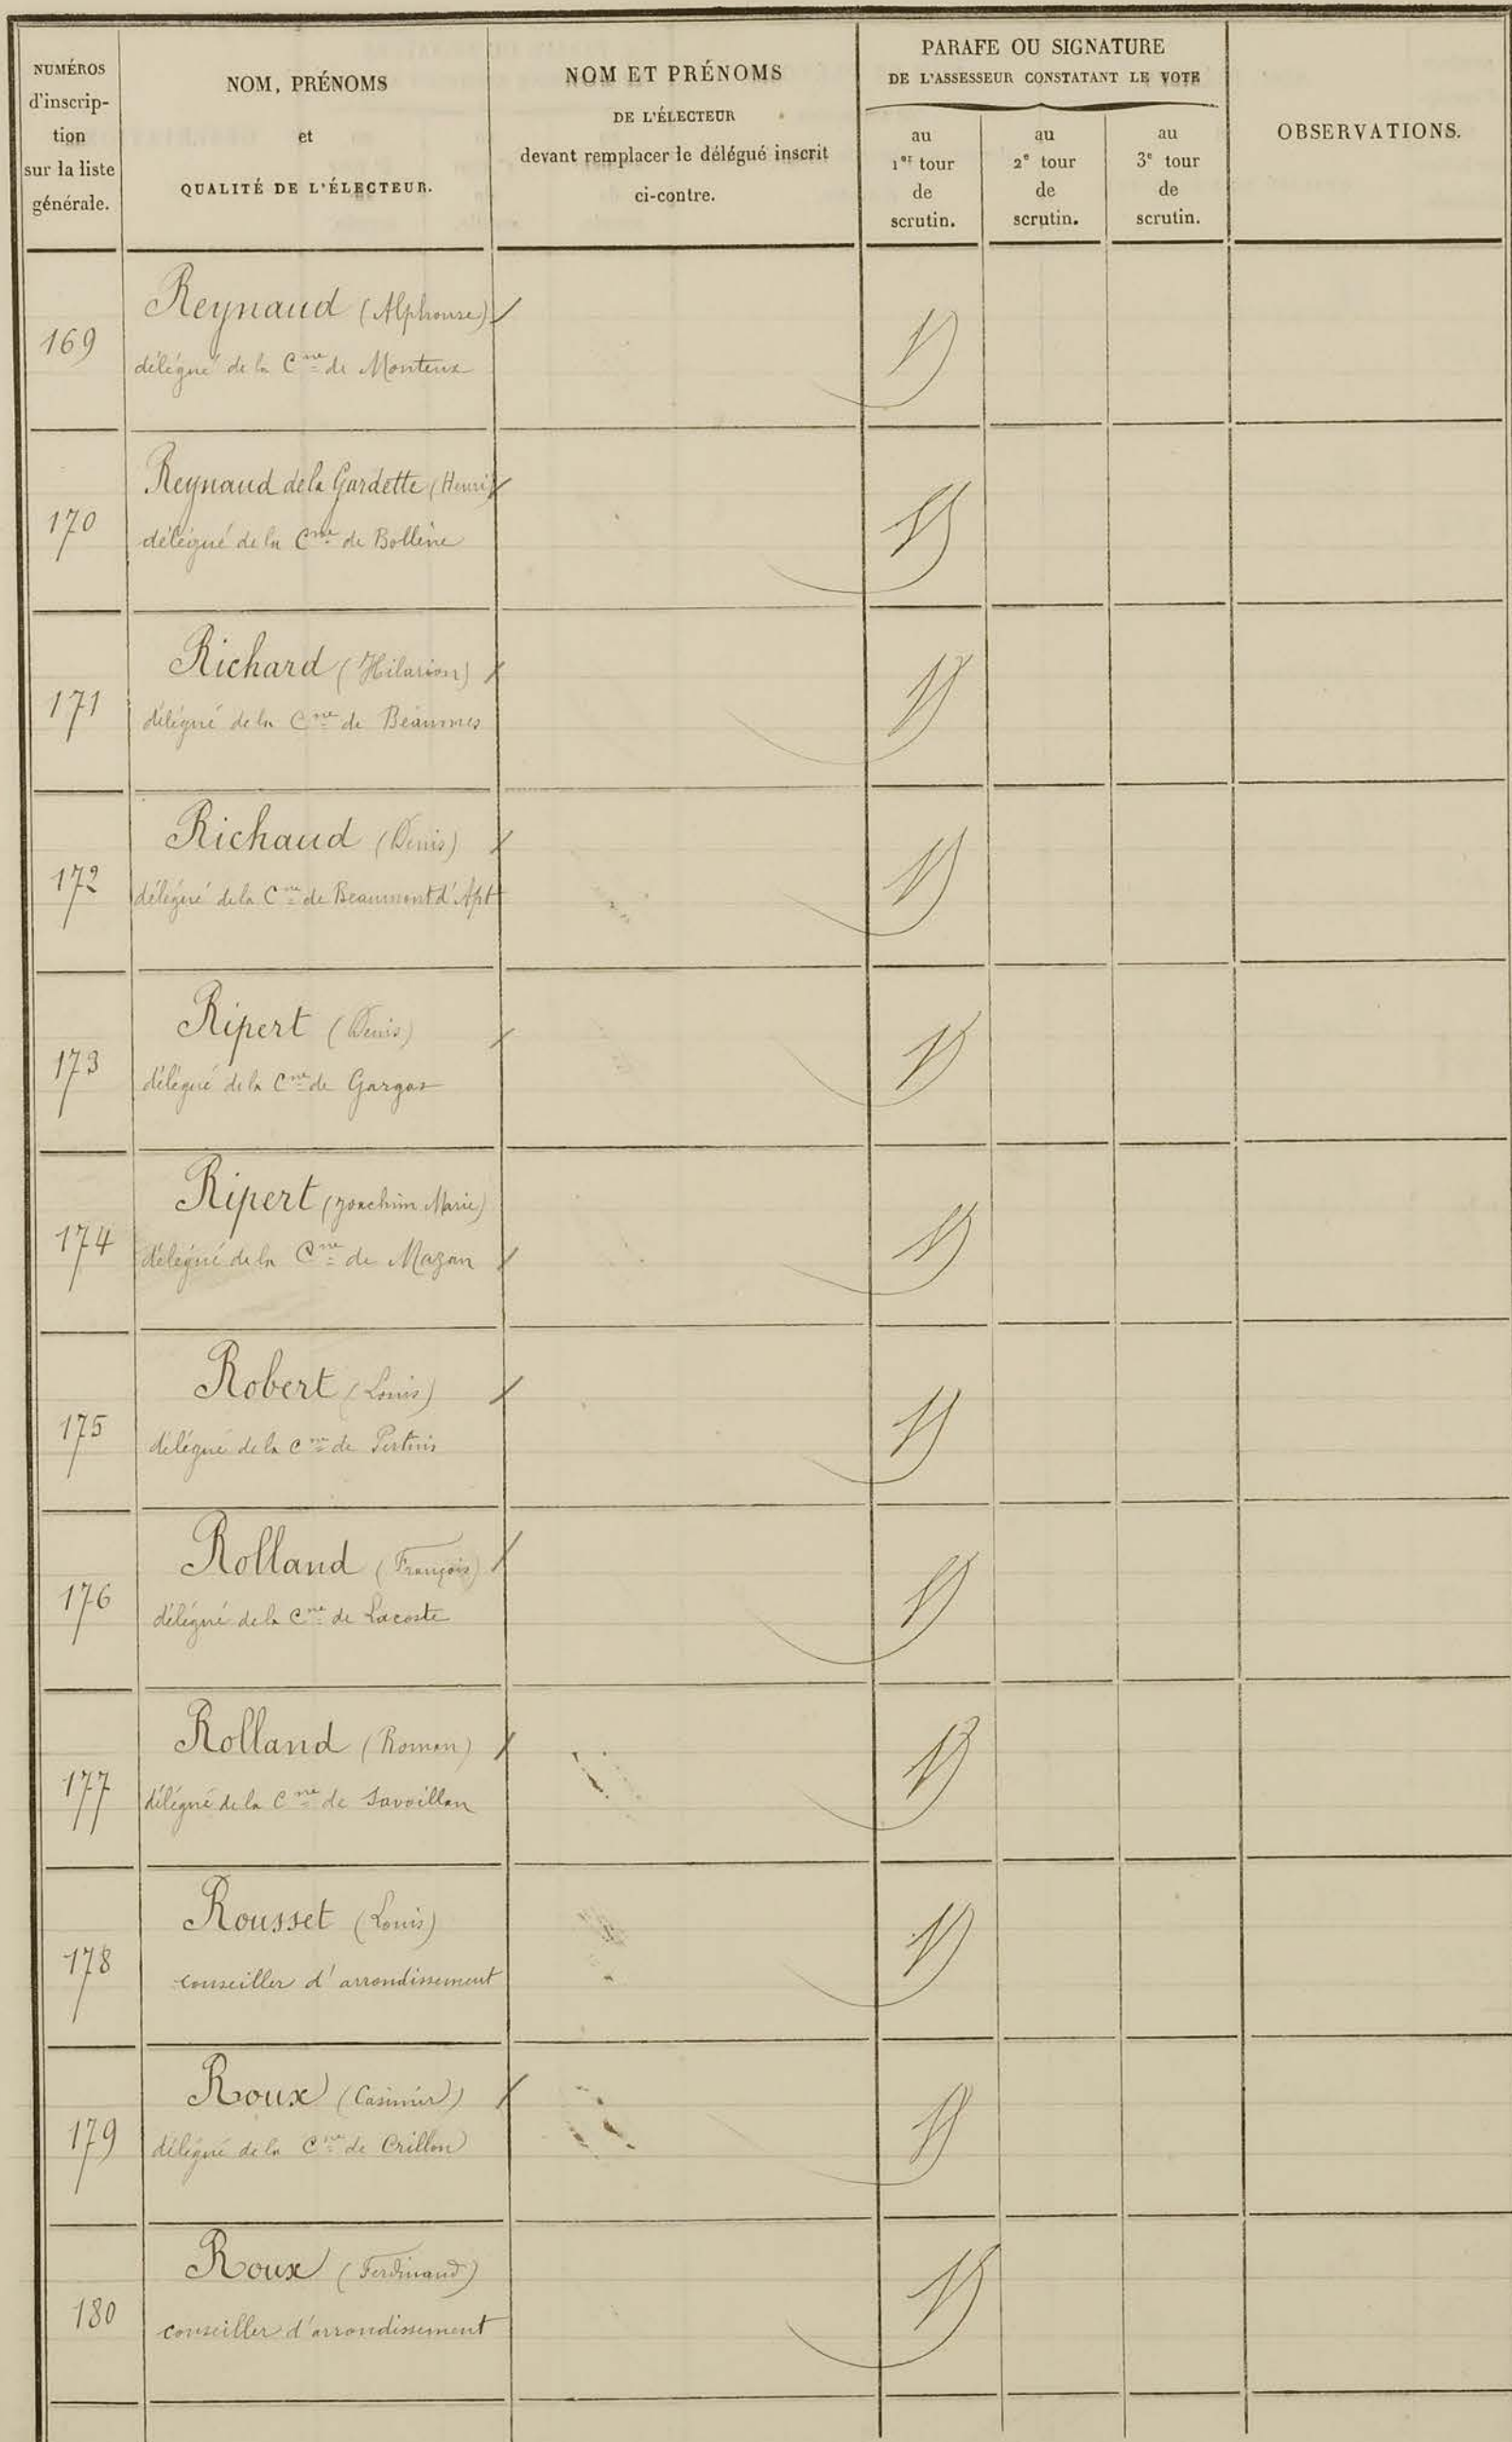 NUMÉROS
d'inscrip-
tion
sur la liste
générale.
NOM, PRÉNOMS
et
QUALITÉ DE L'ÉLECTEUR.
NOM ET PRÉNOMS
DE L'ÉLECTEUR
devant remplacer le délégué inscrit
ci-contre.
PARAFE OU SIGNATURE
DE L'ASSESSEUR CONSTATANT LE VOTE
au
1er tour
de
scrutin.
au
2e tour
de
scrutin.
au
3e tour
de
scrutin.
OBSERVATIONS.
169
Reynaud (Alphonse)
délégué de la Cne de Monteux
170
Reynaud de la Gardette (Henri)
délégué de la Cne de Bollène
171
Richard (Hilarion)
délégué de la Cne de Beaumes
172
Richaud (Denis)
délégué de la Cne de Beaumont d'Apt
173
Ripert (Denis)
délégué de la Cne de Gargas
174
Ripert (Joachim Marie)
délégué de la Cne de Mazan
175
Robert (Louis)
délégué de la Cne de Pertuis
176
Rolland (François)
délégué de la Cne de Lacoste
177
Rolland (Roman)
délégué de la Cne de Savoillan
178
Rousset (Louis)
conseiller d'arrondissement
179
Roux (Casimir)
délégué de la Cne de Crillon
180
Roux (Ferdinand)
conseiller d'arrondissement